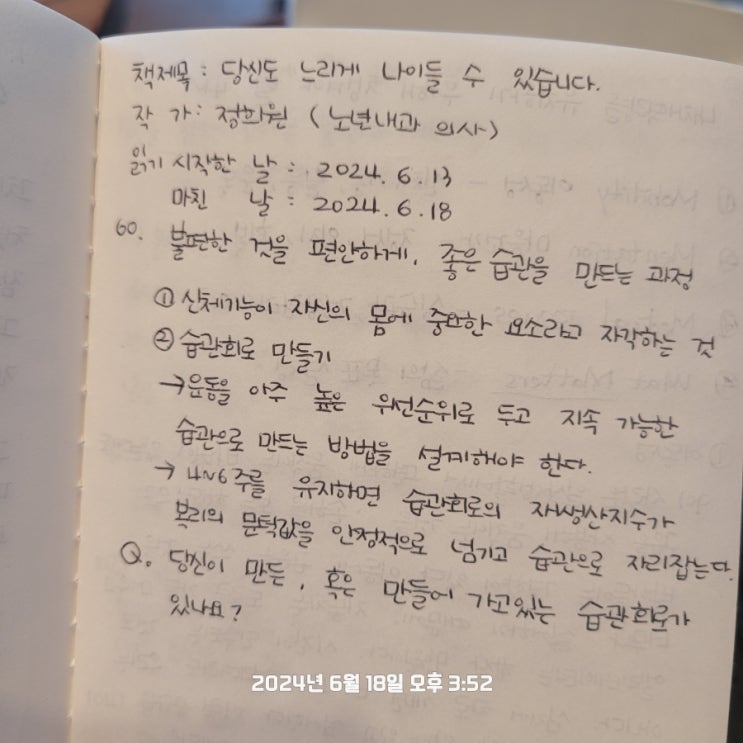 책제목 : 당신도 느리게 나이들 수 있습니다.
작 가 : 정희원 (노년내과 의사)
읽기 시작한 날 : 2024. 6. 13
마친 날 : 2024. 6. 18
60. 불편한 것을 편안하게, 좋은 습관을 만드는 과정
① 신체기능이 자신의 몸에 중요한 요소라고 자각하는 것
② 습관회로 만들기
→ 운동을 아주 높은 우선순위로 두고 지속 가능한
습관으로 만드는 방법을 설계해야 한다.
→ 4~6주를 유지하면 습관회로의 재생산지수가
복리의 문턱값을 안정적으로 넘기고 습관으로 자리잡는다.
Q. 당신이 만든, 혹은 만들어 가고있는 습관회로가
있나요?
2024년 6월 18일 오후 3:52